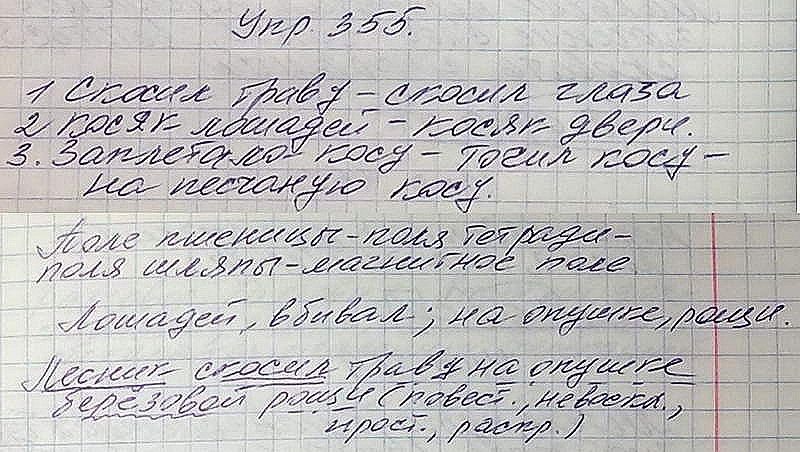 Упр. 355.
1 Скосил траву – скосил глаза
2 косяк лошадей – косяк двери.
3. Заплетало косу – точил косу –
на песчаную косу.
Поле пшеницы – поля тетради –
поля шляпы – магнитное поле
Лошадей, вбивал; на опушке, рощи.
Лесник скосил траву на опушке
берёзовой рощи (повест., невоскл.,
прост., распр.)